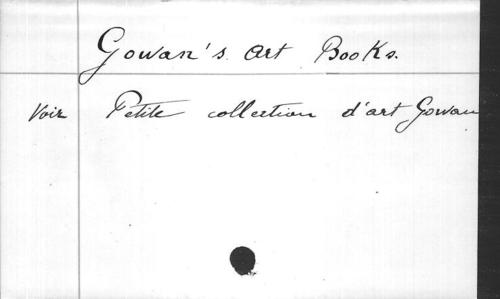 Gowan's Art Books.
Voir Petite collection d'art Gowan